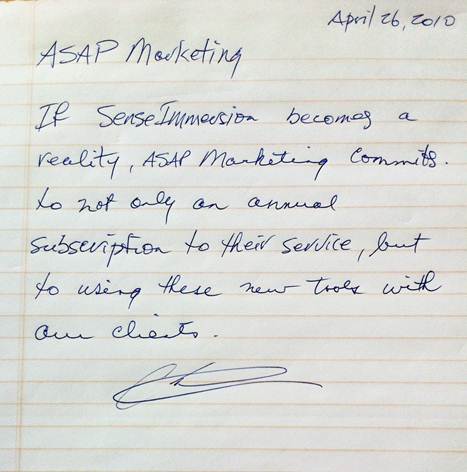 April 26, 2010
ASAP Marketing
If SenseImmersion becomes a
reality, ASAP Marketing commits.
to not only an annual
subscription to their service, but
to using these new tools with
our clients.